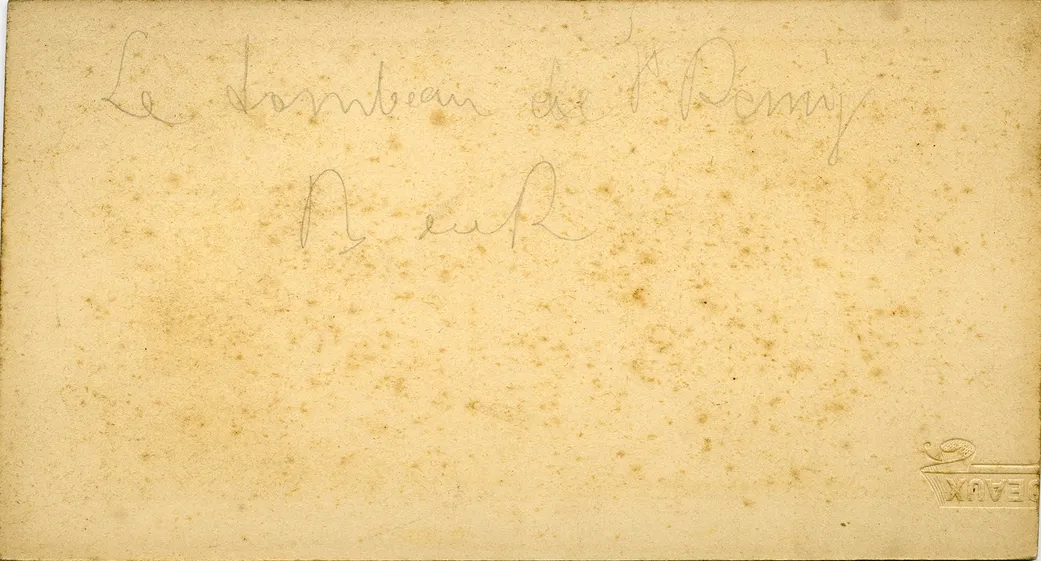 Le tombeau de St Rémy
BEAUX